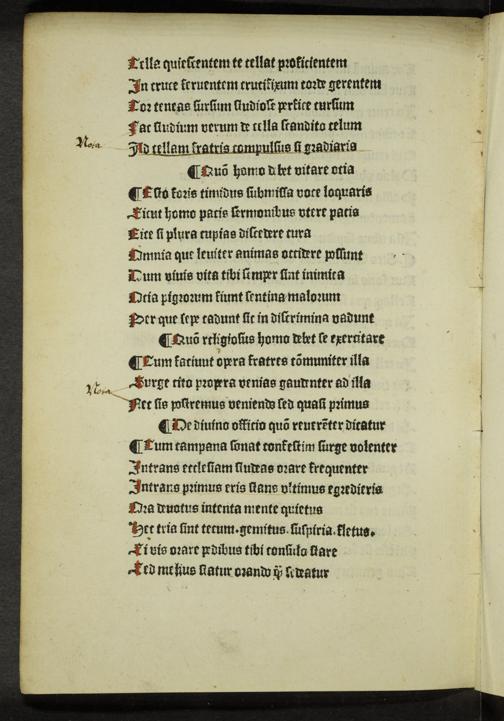 Cella quiescentem te cellat proficientem
In cruce seruentem crucifixum corde gerentem
Cor teneas sursum studiose perfice cursum
Fac studium verum de cella scandito celum
Nota Ad cellam fratris compulsus si gradiaris
¶ Quō homo debet vitare ocia
¶ Esto foris timidus submissa voce loquaris
Sicut homo pacis sermonibus vtere pacis
Site si plura cupias discedere cura
Omnia que leuiter animas occidere possunt
Dum viuis vita tibi semper sint inimica
Ocia pigrorum fiunt sentina malorum
Per que sepe cadunt sic in discrimina vadunt
¶ Quō religiosus homo debet se exercitare
¶ Cum faciunt opera fratres cōmuniter illa
Nota Surge cito propera venias gaudenter ad illa
Nec sis postremus veniendo sed quasi primus
¶ De diuino officio quō reuerēter dicatur
¶ Cum campana sonat confestim surge volenter
Intrans ecclesiam studeas orare frequenter
Intrans primus eris stans vltimus egredieris
Ora deuotus intenta mente quietus
Hec tria sint tecum. gemitus. suspiria. fletus.
Si vis orare pedibus tibi consulo stare
Sed melius statur orando qꝫ sedeatur